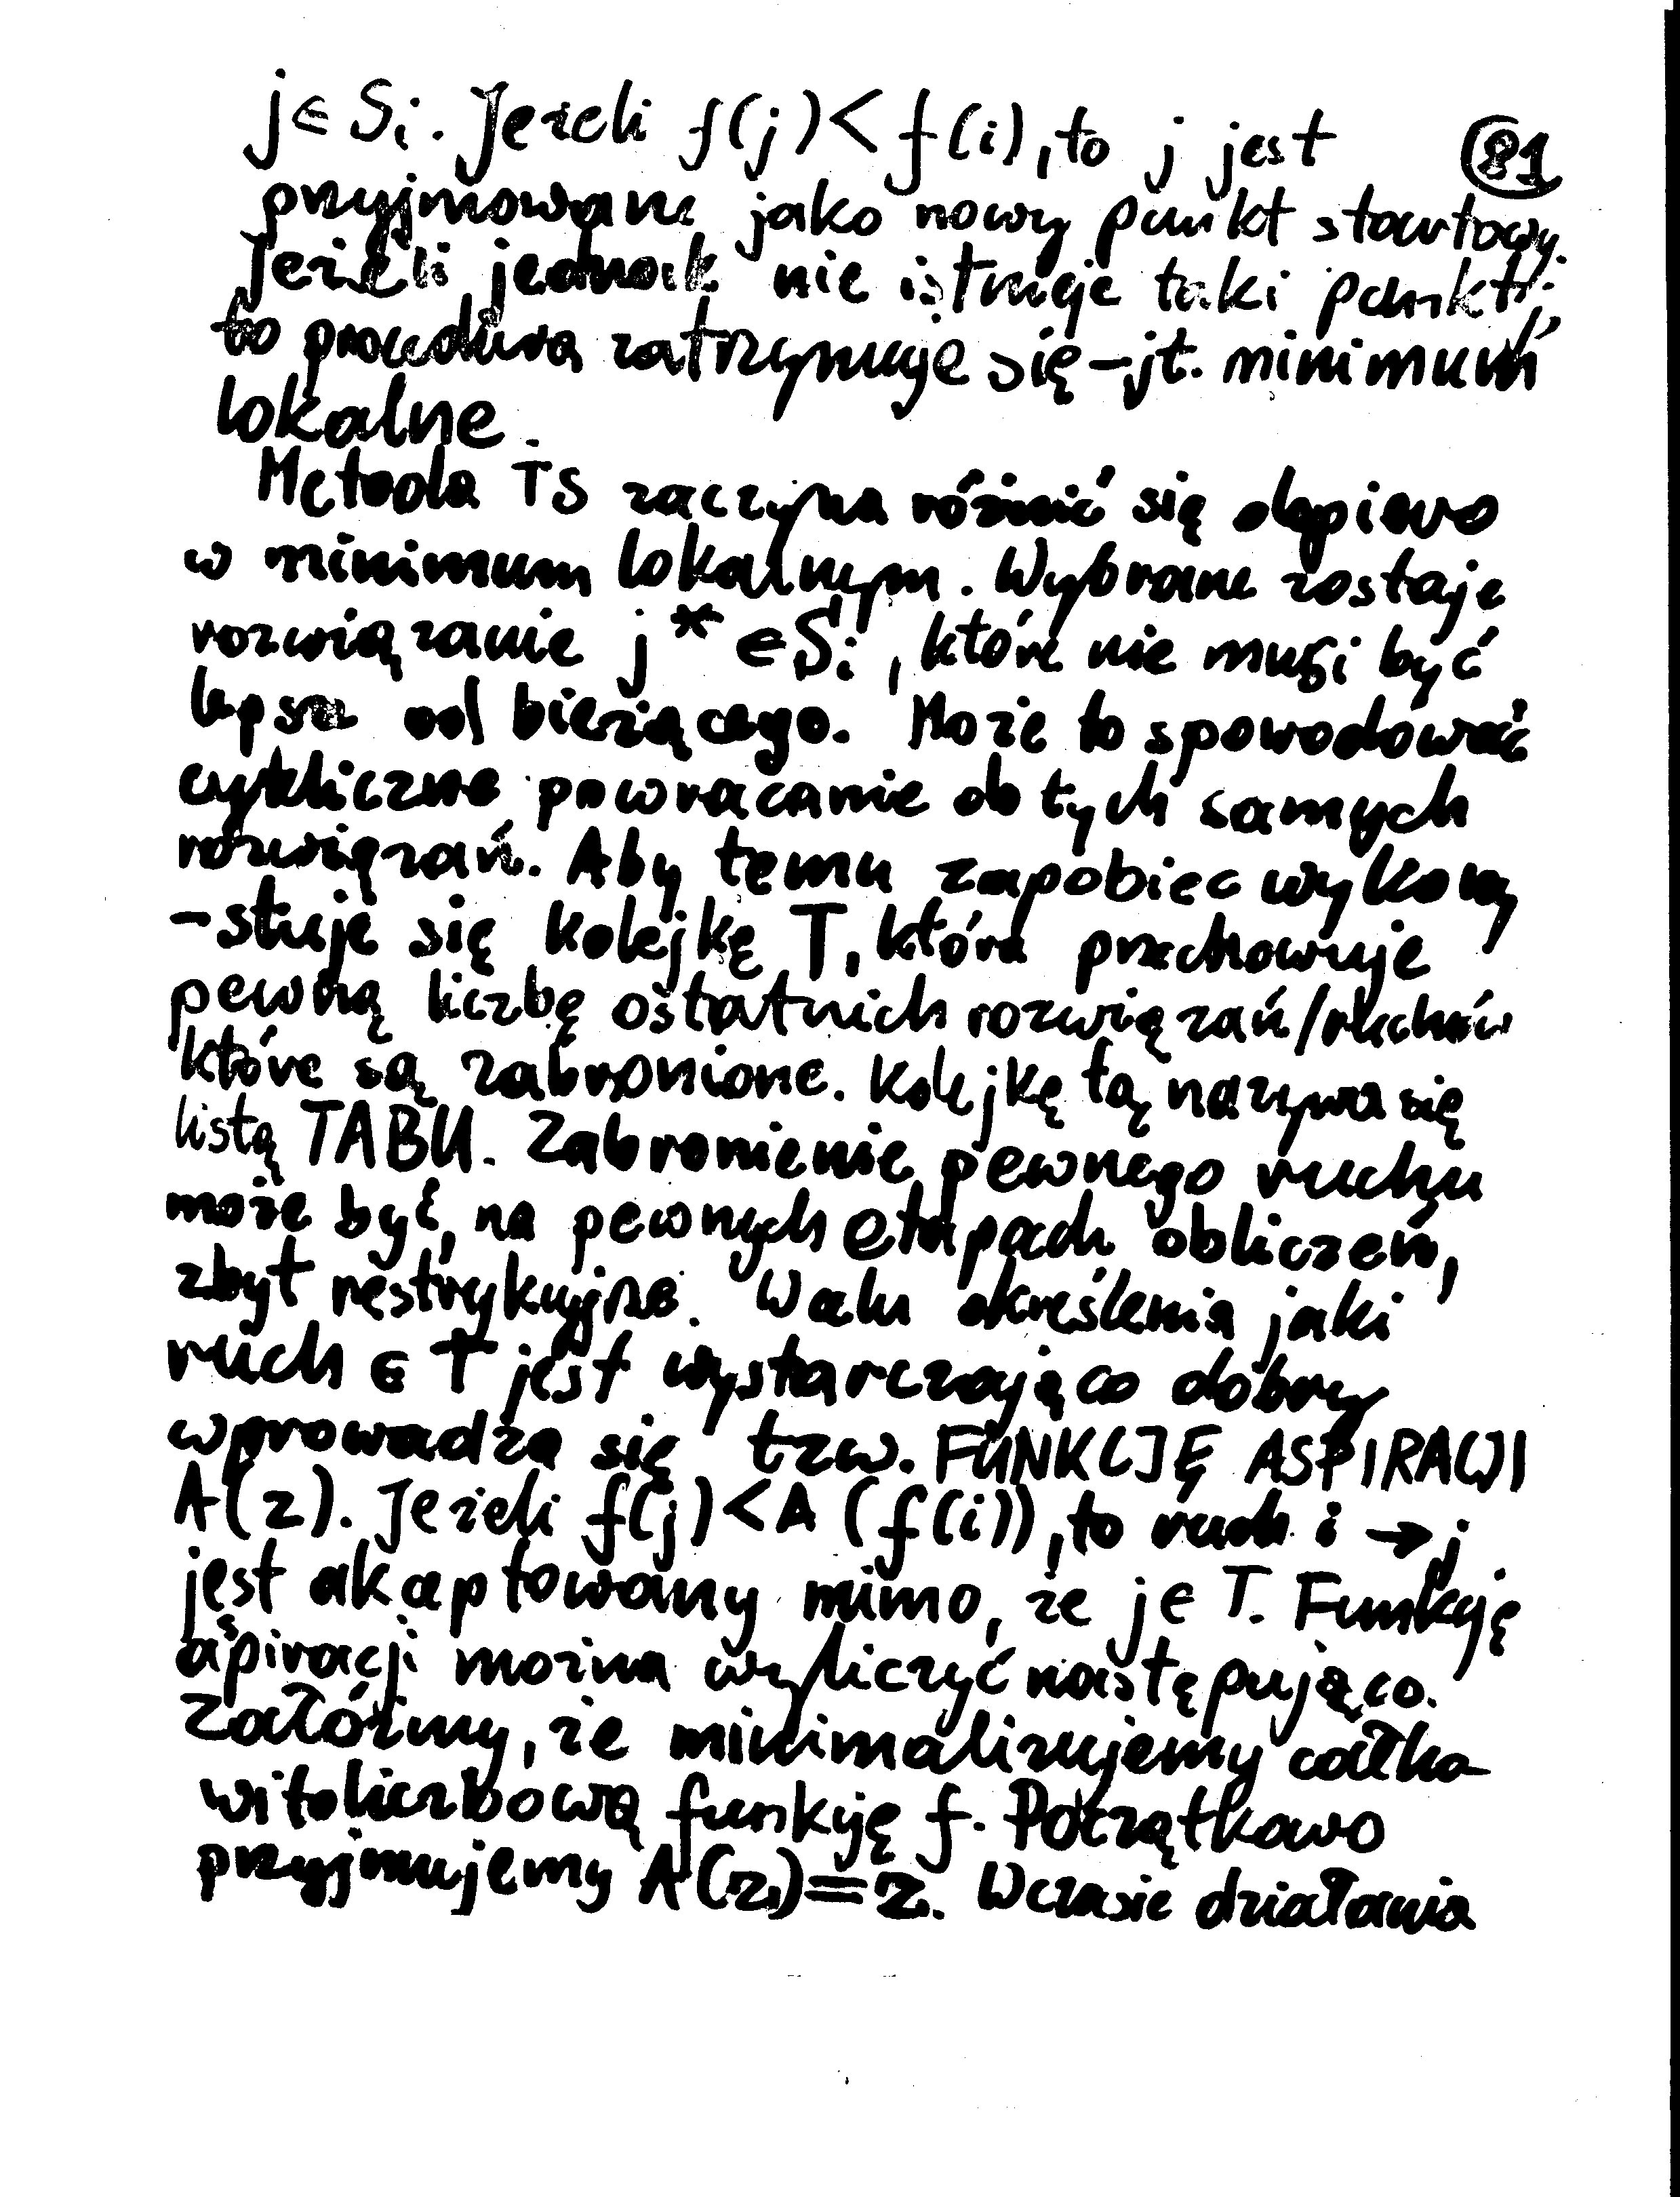 j ∈ Si. Jeżeli f(j) < f(i), to j jest 81
przyjmowane jako nowy punkt startowy.
Jeżeli jednak nie istnieje taki punkt,
to procedura zatrzymuje się – jt. minimum
lokalne.
Metoda TS zaczyna różnić się dopiero
w minimum lokalnym. Wybrane zostaje
rozwiązanie j* ∈ Si, które nie musi być
lepsze od bieżącego. Może to spowodować
cykliczne powracanie do tych samych
rozwiązań. Aby temu zapobiec wykorzy
-stuje się kolejkę T, która przechowuje
pewną liczbę ostatnich rozwiązań/ruchów
które są zabronione. Kolejkę tą nazywa się
listą TABU. Zabronienie pewnego ruchu
może być, na pewnych etapach obliczeń,
zbyt restrykcyjne. W celu określenia jaki
ruch ∈ T jest wystarczająco dobry
wprowadza się tzw. FUNKCJĘ ASPIRACJI
A(z). Jeżeli f(j) < A(f(i)), to ruch i → j
jest akceptowany mimo, że j ∈ T. Funkcję
aspiracji można wyliczyć następująco.
Załóżmy, że minimalizujemy całko
witoliczbową funkcję f. Początkowo
przyjmujemy A(z) = z. W czasie działania